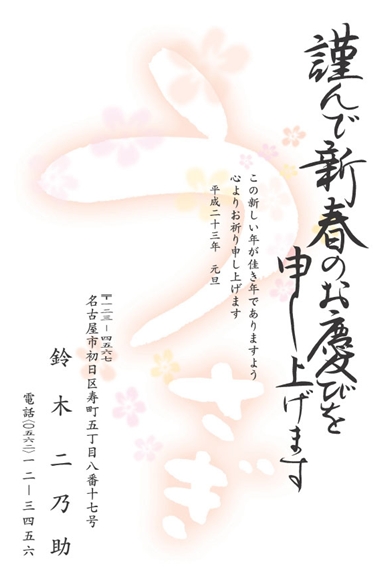 謹んで新春のお慶びを
申し上げます
この新しい年が佳き年でありますよう
心よりお祈り申し上げます
平成二十三年 元旦
うさぎ
〒一二三－四五六七
名古屋市初日区寿町五丁目八番十七号
鈴木二乃助
電話(〇五六二)一二－三四五六